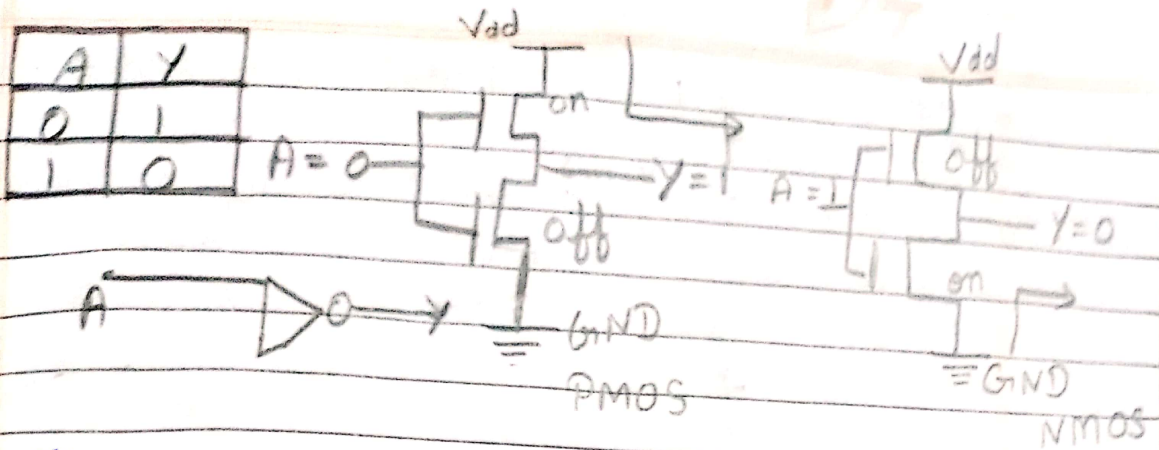 A Y
0 1
1 0
Vdd
on
A = 0
Y = 1
off
GND
PMOS
A
Y
Vdd
off
A = 1
Y = 0
on
GND
NMOS